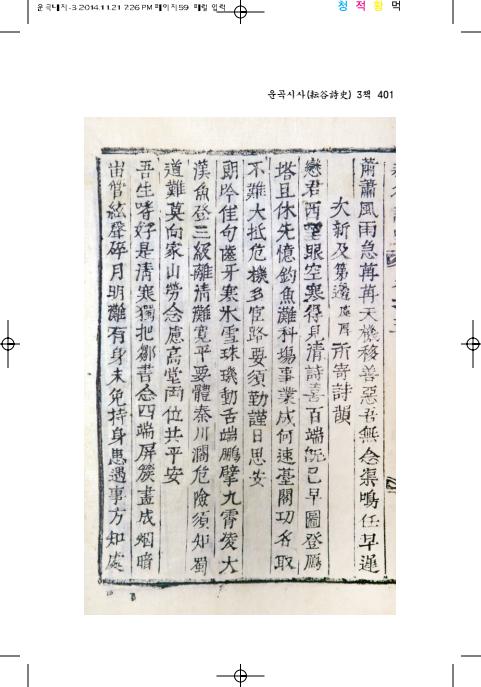 운곡대지-3 2014.11.21 7:26 PM 페이지59 매월 입력
청 적 황 먹
운곡시사(耘谷詩史) 3책 401
蕭蕭風雨急苒苒天機移善惡吾無念渠鳴任早遲
次新及第邊 所寄詩韻
戀君西望眼空寒得見清詩喜百端旣已早圖登鴈
塔且休先憶釣魚灘科場事業成何速臺閣功名取
不難大抵危機多宦路要須勤謹日思安
朗吟佳句儘牙寒氷雪珠璣動舌端鵬擘九霄凌大
漢魚登三級離清灘寬平要體秦川濶危險須知蜀
道難莫向家山勞念慮高堂兩位共平安
吾生嗜好是清寒獨把鄒書念四端屏簇畫成烟暗
宙管絃聲碎月明灘有身未免持身患遇事方知處